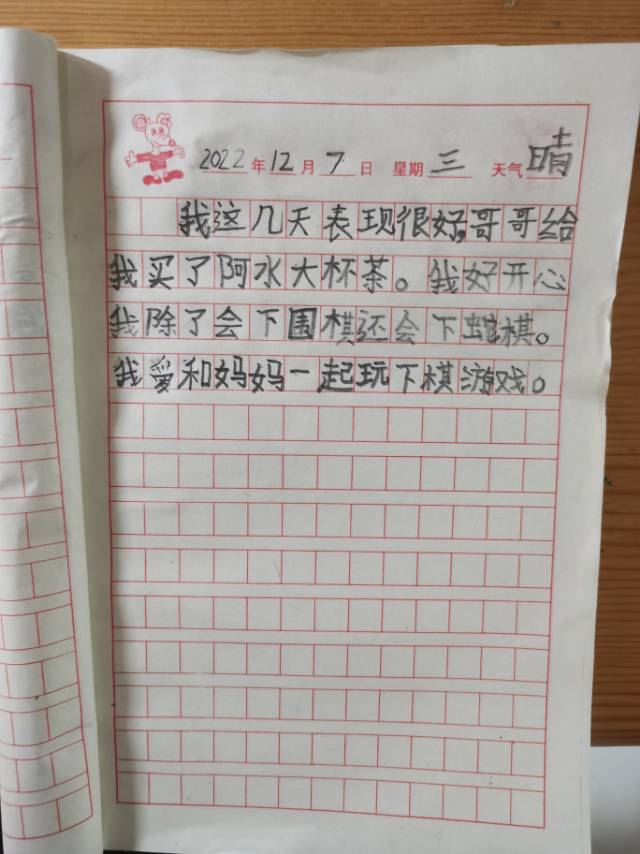 2022年12月7日 星期三 天气晴
我这几天表现很好,哥哥给
我买了阿水大杯茶。我好开心
我除了会下围棋还会下蛇棋。
我爱和妈妈一起玩下棋游戏。